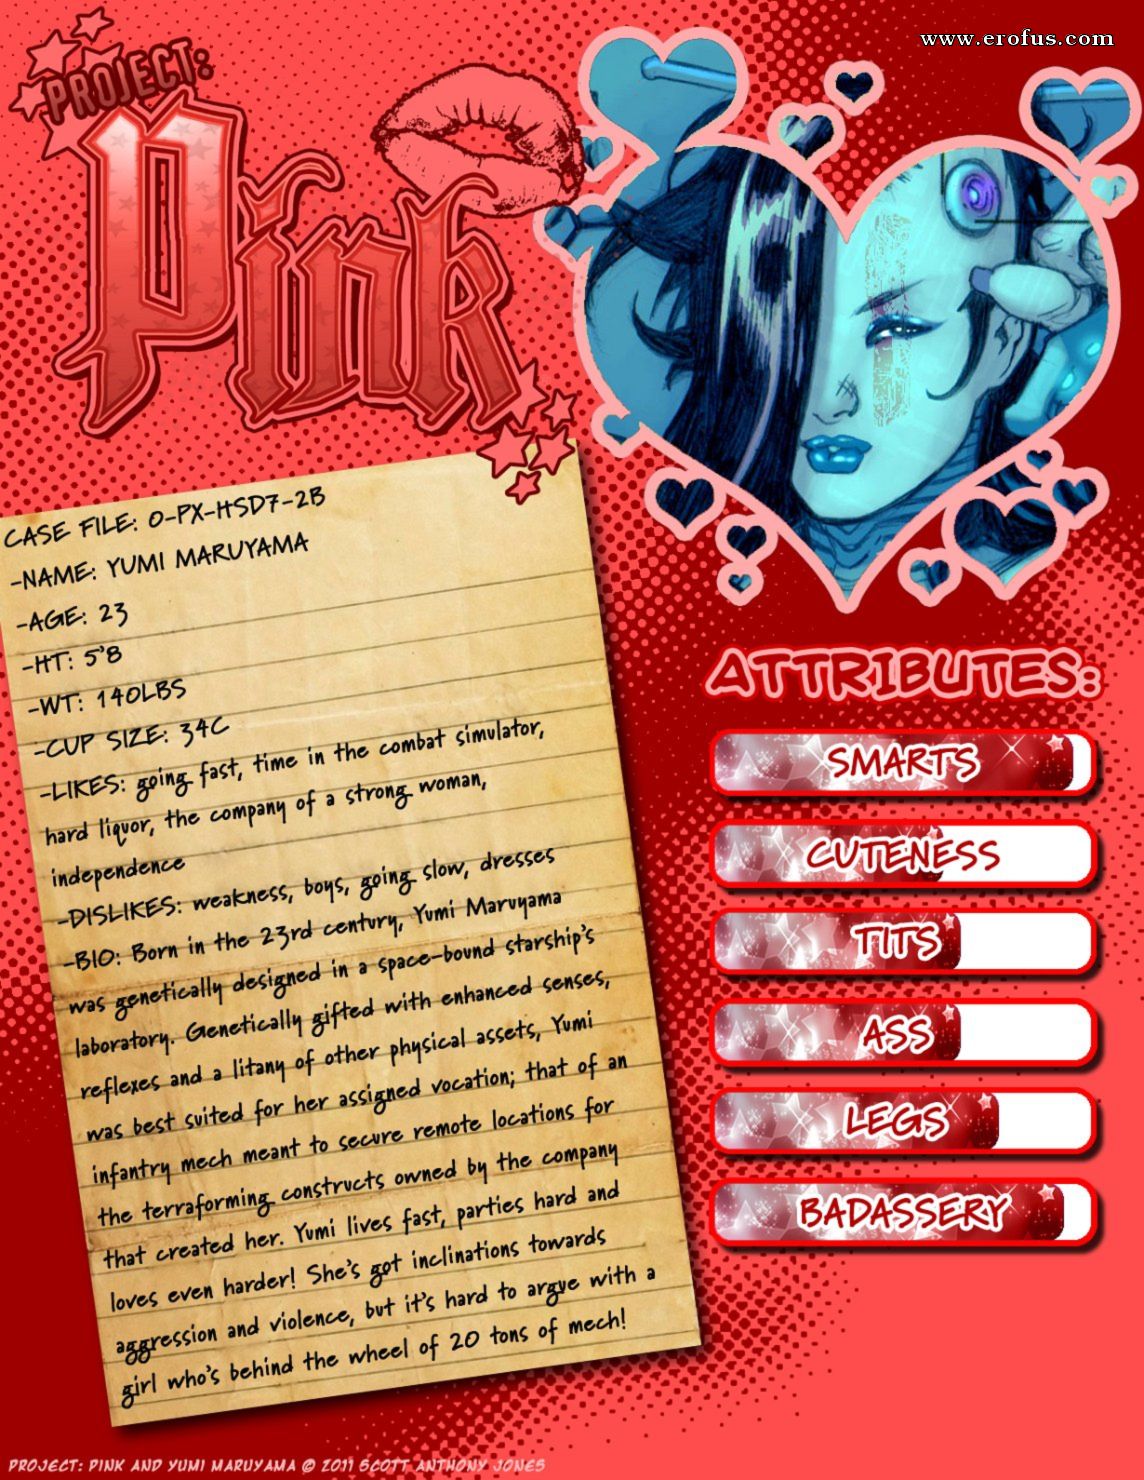 www.erofus.com
PROJECT:
Pink
CASE FILE: 0-PX-HSD7-2B
-NAME: YUMI MARUYAMA
-AGE: 23
-HT: 5'8
-WT: 140LBS
-CUP SIZE: 34C
-LIKES: going fast, time in the combat simulator,
hard liquor, the company of a strong woman,
independence
-DISLIKES: weakness, boys, going slow, dresses
-BIO: Born in the 23rd century, Yumi Maruyama
was genetically designed in a space-bound starship's
laboratory. Genetically gifted with enhanced senses,
reflexes and a litany of other physical assets, Yumi
was best suited for her assigned vocation; that of an
infantry mech meant to secure remote locations for
the terraforming constructs owned by the company
that created her. Yumi lives fast, parties hard and
loves even harder! She's got inclinations towards
aggression and violence, but it's hard to argue with a
girl who's behind the wheel of 20 tons of mech!
ATTRIBUTES:
SMARTS
CUTENESS
TITS
ASS
LEGS
BADASSERY
PROJECT: PINK AND YUMI MARUYAMA © 2011 SCOTT ANTHONY JONES